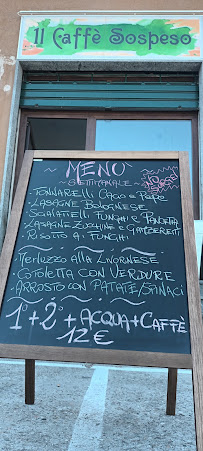 Il Caffè Sospeso
MENÙ
SETTIMANALE
- TONNARELLI CACIO e PEPE
- LASAGNE BOLOGNESE
- SCIALATIELLI FUNGHI e PANCETTA
- LASAGNE ZUCCHINE e GAMBERETTI
- RISOTTO AI FUNGHI
- MERLUZZO ALLA LIVORNESE
- COTOLETTA CON VERDURE
- ARROSTO CON PATATE/SPINACI
1°+2°+ACQUA+CAFFÈ
12€